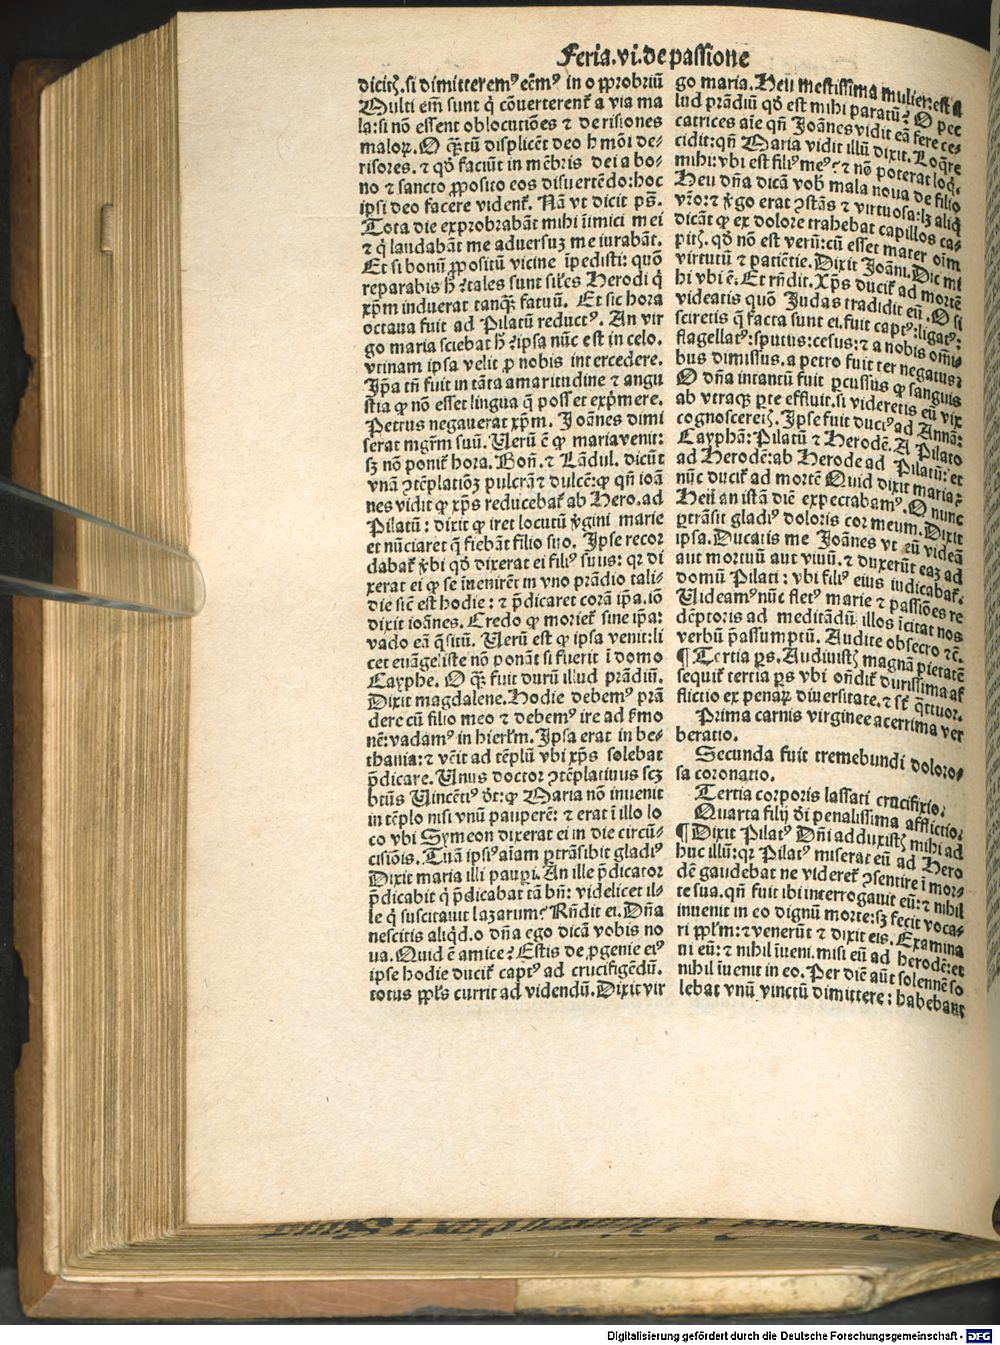 Feria.vi.de passione
dicit᷒.si dimitterem᷒ eēm᷒ in opprobriū
Multi em̄ sunt q̇ cōuerterent᷑ a via ma
la:si nō essent oblocutiōes ⁊ derisiones
maloꝝ.O qꝫtū displicēt deo hmōi de⸗
risores.⁊ qd̄ faciūt in mēbris dei a bo⸗
no ⁊ sancto ꝓposito eos diuertēdo:hoc
ipsi deo facere vident᷑. Nā vt dicit pš.
Tota die exprobrabāt mihi inimici mei
⁊ q̇ laudabāt me aduersuꝫ me iurabāt.
Et si bonū ꝓpositū vicine īpedisti: quō
reparabis h̄ ?tales sunt siłes Herodi q̇
xp̄m induerat tanqꝫ fatuū. Et sic hora
octaua fuit ad Pilatū reduct᷒. An vir
go maria sciebat h̄ ?ipsa nūc est in celo.
vtinam ipsa velit ꝓ nobis intercedere.
Ip̄a tn̄ fuit in tāta amaritudine ⁊ angu
stia ꝙ nō esset lingua q̄ posset exp̄mere.
Petrus negauerat xp̄m. Joānes dimi
serat mgr̄m suū. Uerū ē ꝙ maria venit:
sꝫ nō ponit᷑ hora. Bon̄.⁊ Lādul. dicūt
vnā ↄtēplatiōꝫ pulcrā ⁊ dulcē:ꝙ qn̄ ioā
nes vidit ꝙ xp̄s reducebat᷑ ab Hero.ad
Pilatū: dixit ꝙ iret locutū v̇gini marie
et nūciaret q̄ fiebāt filio suo. Ipse recor
dabat᷑ v̇bi qd̄ dixerat ei fili᷒ suus: qꝛ di
xerat ei ꝙ se inuenirēt in vno prādio tali⸗
die sic̄ est hodie: ⁊ p̄dicaret corā ip̄a.iō
dixit ioānes. Credo ꝙ moriet᷑ sine ip̄a:
vado eā q̄situ. Uerū est ꝙ ipsa venit:li
cet euāgeliste nō ponāt si fuerit ī domo
Cayphe. O qꝫ fuit durū illud prādiū.
Dixit magdalene.Hodie debem᷒ prā
dere cū filio meo ⁊ debem᷒ ire ad ẜmo
nē:vadam᷒ in hierłm. Ipsa erat in be⸗
thania:⁊ vēit ad tēplū vbi xp̄s solebat
p̄dicare. Unus doctor ↄtēplatiuus scꝫ
btūs Uincēti᷒ dt̄:ꝙ Maria nō inuenit
in tēplo nisi vnū pauperē: ⁊ erat ī illo lo
co vbi Symeon dixerat ei in die circū⸗
cisiōis. Tuā ipsi᷒ aīam ꝑtrāsibit gladi᷒
Dixit maria illi pauꝑi.An ille p̄dicator
p̄dicabit q̇ p̄dicabat tā bn̄: videlicet il⸗
le q̇ suscitauit lazarum? Rn̄dit ei.Dn̄a
nescitis aliqd̄.o dn̄a ego dicā vobis no
ua.Quid ē amice? Estis de ꝓgenie ei᷒
ipse hodie ducit᷑ capt᷒ ad crucifigēdū.
totus ppłs currit ad videndū.Dixit vir
go maria.Heu mestissima mulier:est il
lud prādiū qd̄ est mihi paratū? O pec
catrices aīe qn̄ Joānes vidit eā fere ce⸗
cidit:qn̄ Maria vidit illū dixit.Loq̄re
mihi:vbi est fili᷒ me᷒? ⁊ nō poterat loq̇.
Heu dn̄a dicā vob̄ mala noua de filio
vr̄o:⁊ v̇go erat ↄstās ⁊ virtuosa:lꝫ aliq̇
dicāt ꝙ ex dolore trahebat capillos ca⸗
pit᷒. qd̄ nō est verū:cū esset mater oīm
virtutū ⁊ patiētie. Dixit Joāni. Dic mi
hi vbi ē: Et rn̄dit. Xp̄s ducit᷑ ad mortē
videatis quō Judas tradidit eū. O si
sciretis q̄ facta sunt ei.fuit capt᷒:ligat᷒:
flagellat᷒:sputus:cesus:⁊ a nobis om̄i⸗
bus dimissus.a petro fuit ter negatus:
O dn̄a intantū fuit ꝑcussus ꝙ sanguis
ab vtraqꝫ ꝑte effluit.si videretis eū vix
cognosceret᷒. Ipse fuit duct᷒ ad Annā:
Cayphā:Pilatū ⁊ Herodē. A Pilato
ad Herodē:ab Herode ad Pilatū:et
nūc ducit᷑ ad mortē Quid dixit maria:
Heu an istā diē expectabam᷒. O nunc
ꝑtrāsit gladi᷒ doloris cor meum. Dixit
ipsa.Ducatis me Joānes vt eū videā
aut mortuū aut viuū.⁊ duxerūt eaꝫ ad
domū Pilati: vbi fili᷒ eius iudicabat᷑.
Uideam᷒ nūc flet᷒ marie ⁊ passiōes re
dēptoris ad meditādū: illos īcitat nos
verbū p̄assumptū. Audite obsecro ⁊c̄.
¶ Tertia ꝑs. Audiuist᷒ magnā pietatē
sequit᷑ tertia ꝑs vbi oñdit᷑ durissima af
flictio ex penaꝝ diuersitate.⁊ st̄ q̄ttuor.
Prima carnis virginee acerrima ver
beratio.
Secunda fuit tremebundi doloro⸗
sa coronatio.
Tertia corporis lassati crucifixio.
Quarta filij dī penalissima afflictio.
¶ Dixit Pilat᷒ Dn̄i adduxist᷒ mihi ad
huc illū:qꝛ Pilat᷒ miserat eū ad Hero
dē gaudebat ne videret᷑ ↄsentire ī mor⸗
te sua.qn̄ fuit ibi interrogauit eū:⁊ nihil
inuenit in eo dignū morte:sꝫ fecit voca⸗
ri ppłm:⁊ venerūt ⁊ dixit eis. Examina
ui eū:⁊ nihil īueni.misi eū ad herodē:et
nihil īuenit in eo. Per diē aūt solennē so
lebat vnū vinctū dimittere: habebant
Digitalisierung gefördert durch die Deutsche Forschungsgemeinschaft - DFG